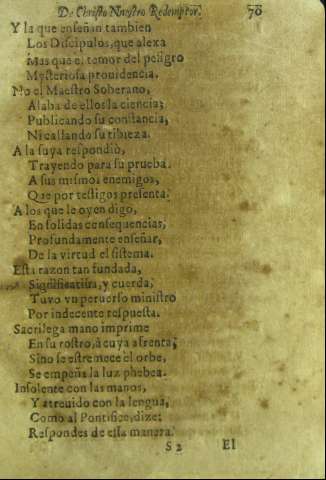 De Christo Nuestro Redemptor. 70
Y la que enseñan tambien
Los Discipulos, que alexa
Mas que el temor del peligro
Mysteriosa prouidencia.
No el Maestro Soberano,
Alaba de ellos la ciencia;
Publicando su constancia,
Ni callando su tibieza.
A la suya respondiò,
Trayendo para su prueba.
A sus mismos enemigos,
Que por testigos presenta.
A los que le oyen digo,
En solidas consequencias,
Profundamente enseñar,
De la virtud el sistema.
Esta razon tan fundada,
Significatiua, y cuerda,
Tuvo vn peruerso ministro
Por indecente respuesta.
Sacrilega mano imprime
En su rostro, à cuya afrenta,
Sino se estremece el orbe,
Se empeña la luz phebea.
Insolente con las manos,
Y atreuido con la lengua,
Como al Pontifice, dize:
Respondes de essa manera.
S 2 El